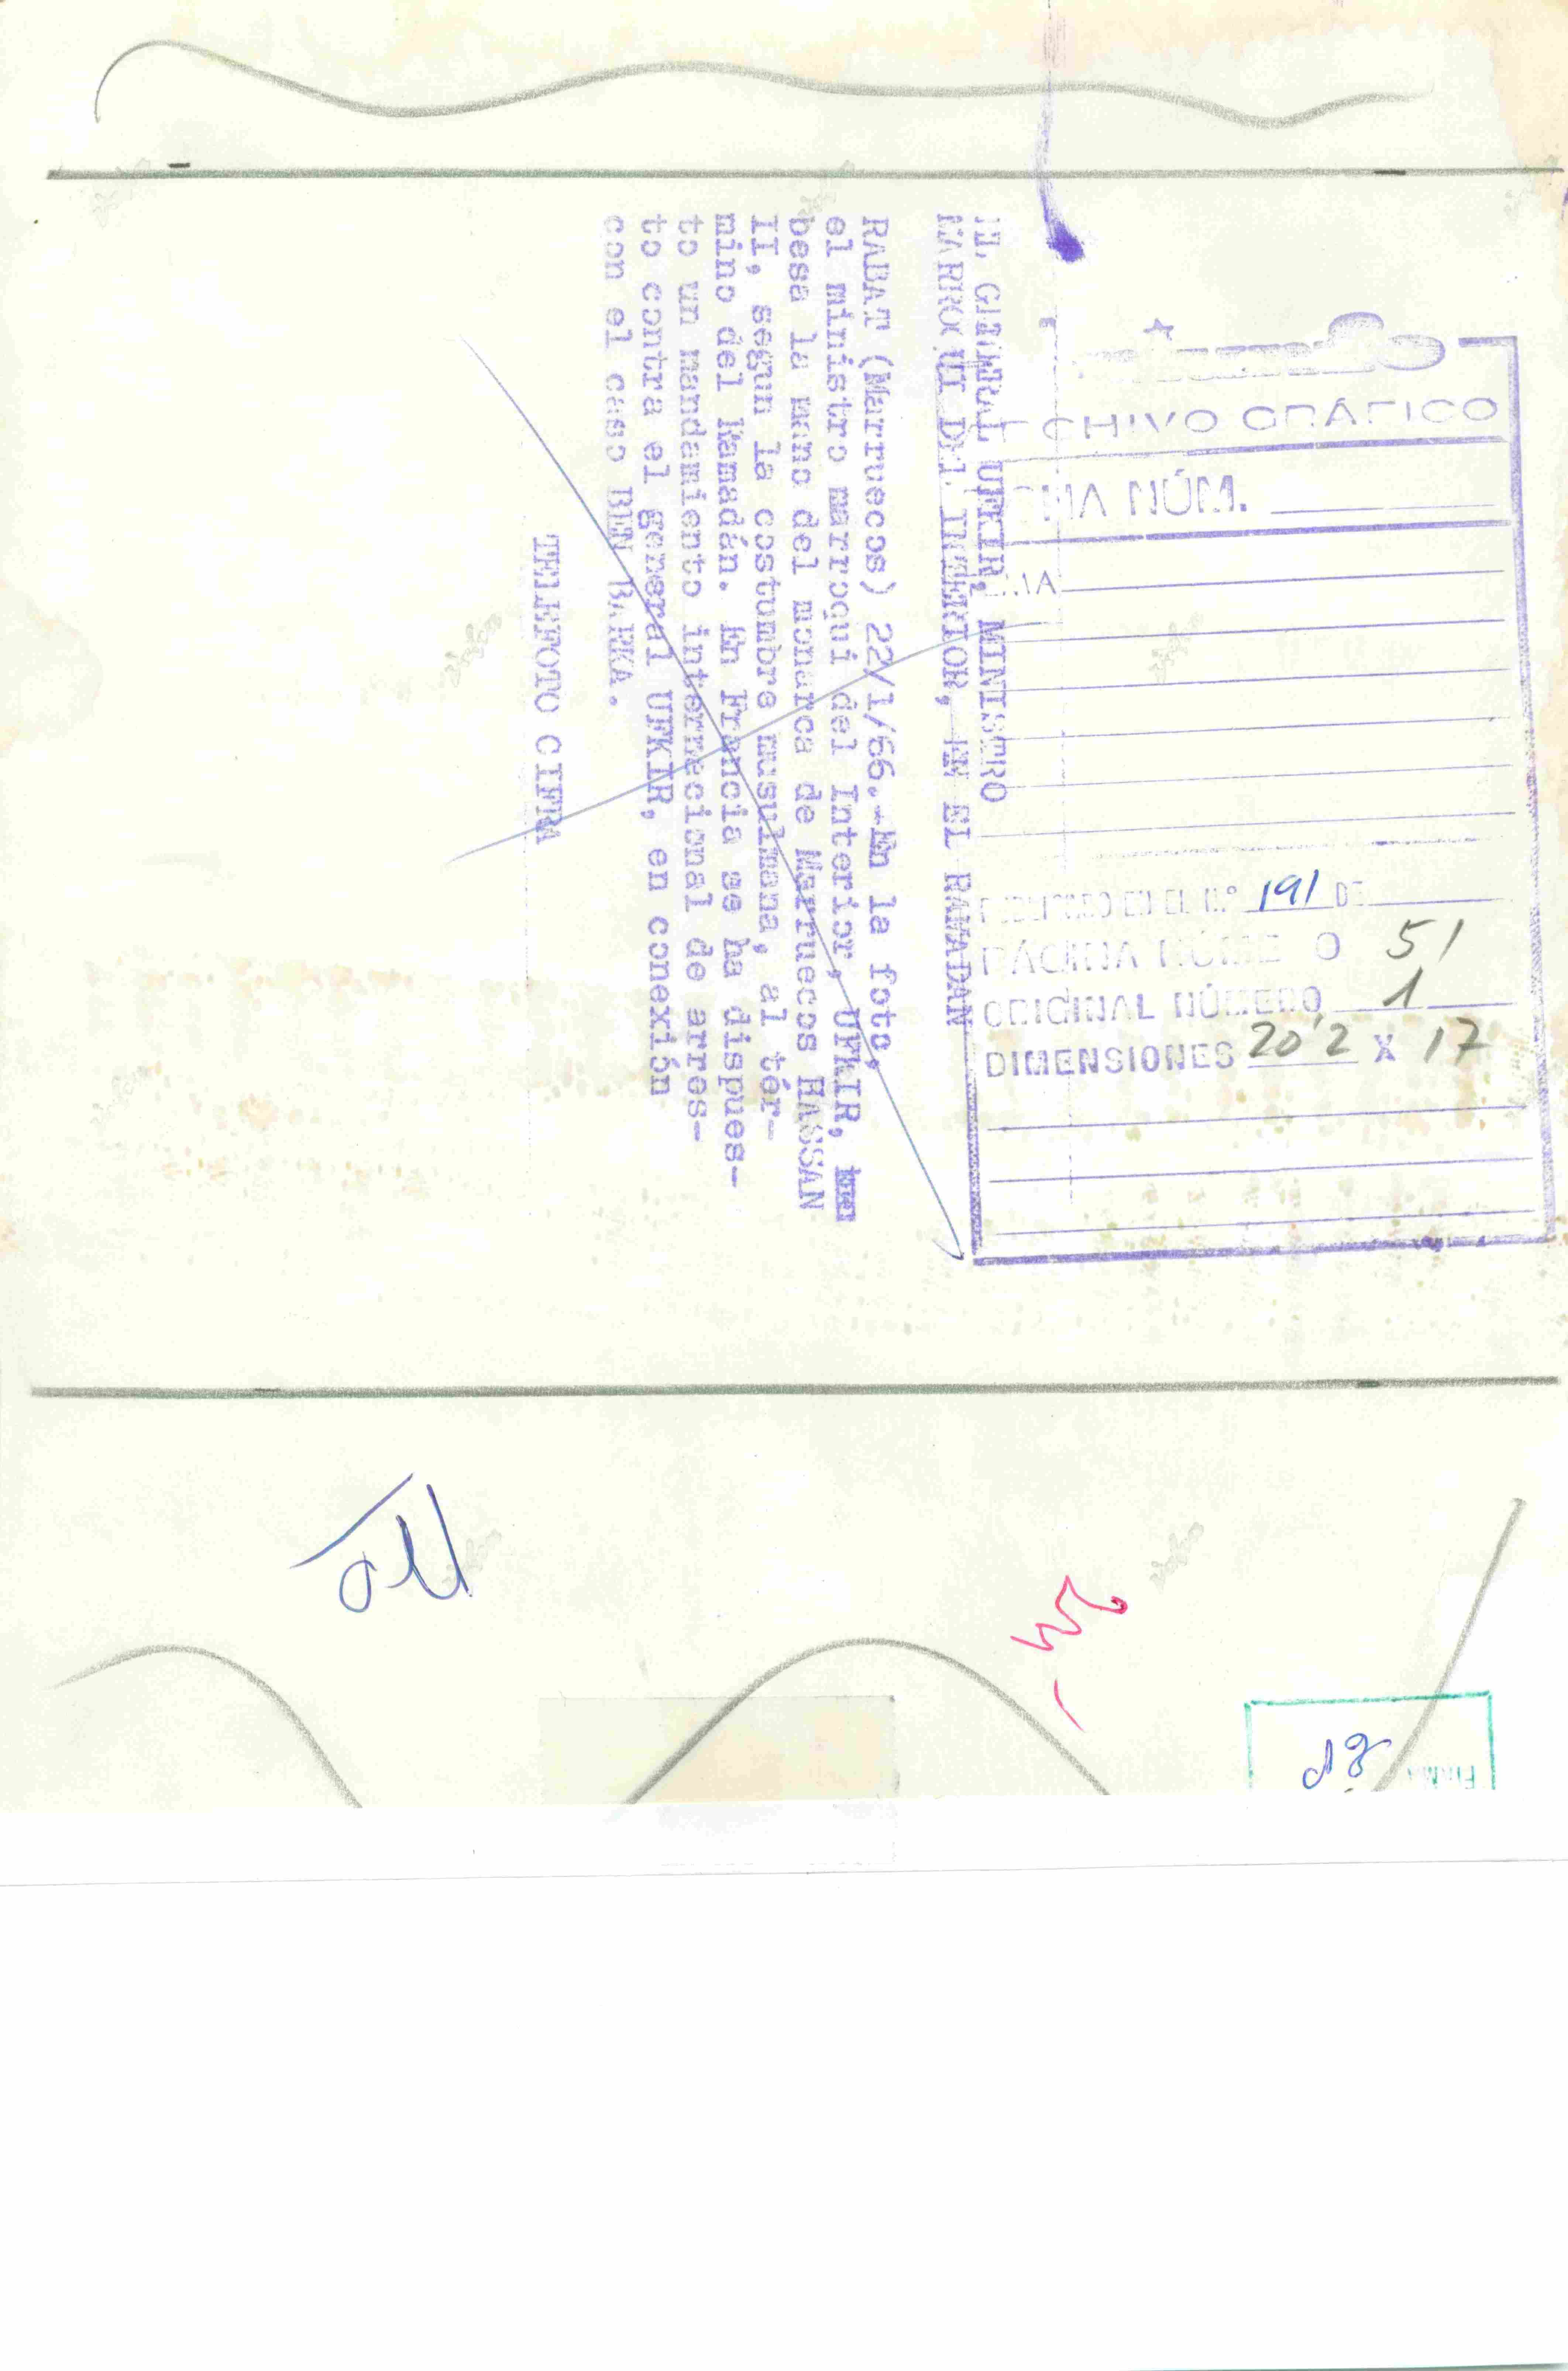 EL GENERAL UFKIR, MINISTRO
MARROQUI DEL INTERIOR, EN EL RAMADAN
RABAT (Marruecos) 22/1/66.-En la foto,
el ministro marroqui del Interior, UFKIR,
besa la mano del monarca de Marruecos HASSAN
II, segun la costumbre musulmana, al tér-
mino del Ramadán. En Francia se ha dispues-
to un mandamiento internacional de arres-
to contra el general UFKIR, en conexión
con el caso BEN BARKA.
TELEFOTO CIFRA
ARCHIVO GRÁFICO
NÚM.
PUBLICADO EN EL N.º 191 DE
PÁGINA NÚMERO 51
ORIGINAL NÚMERO 1
DIMENSIONES 20'2 X 17
FIRMA